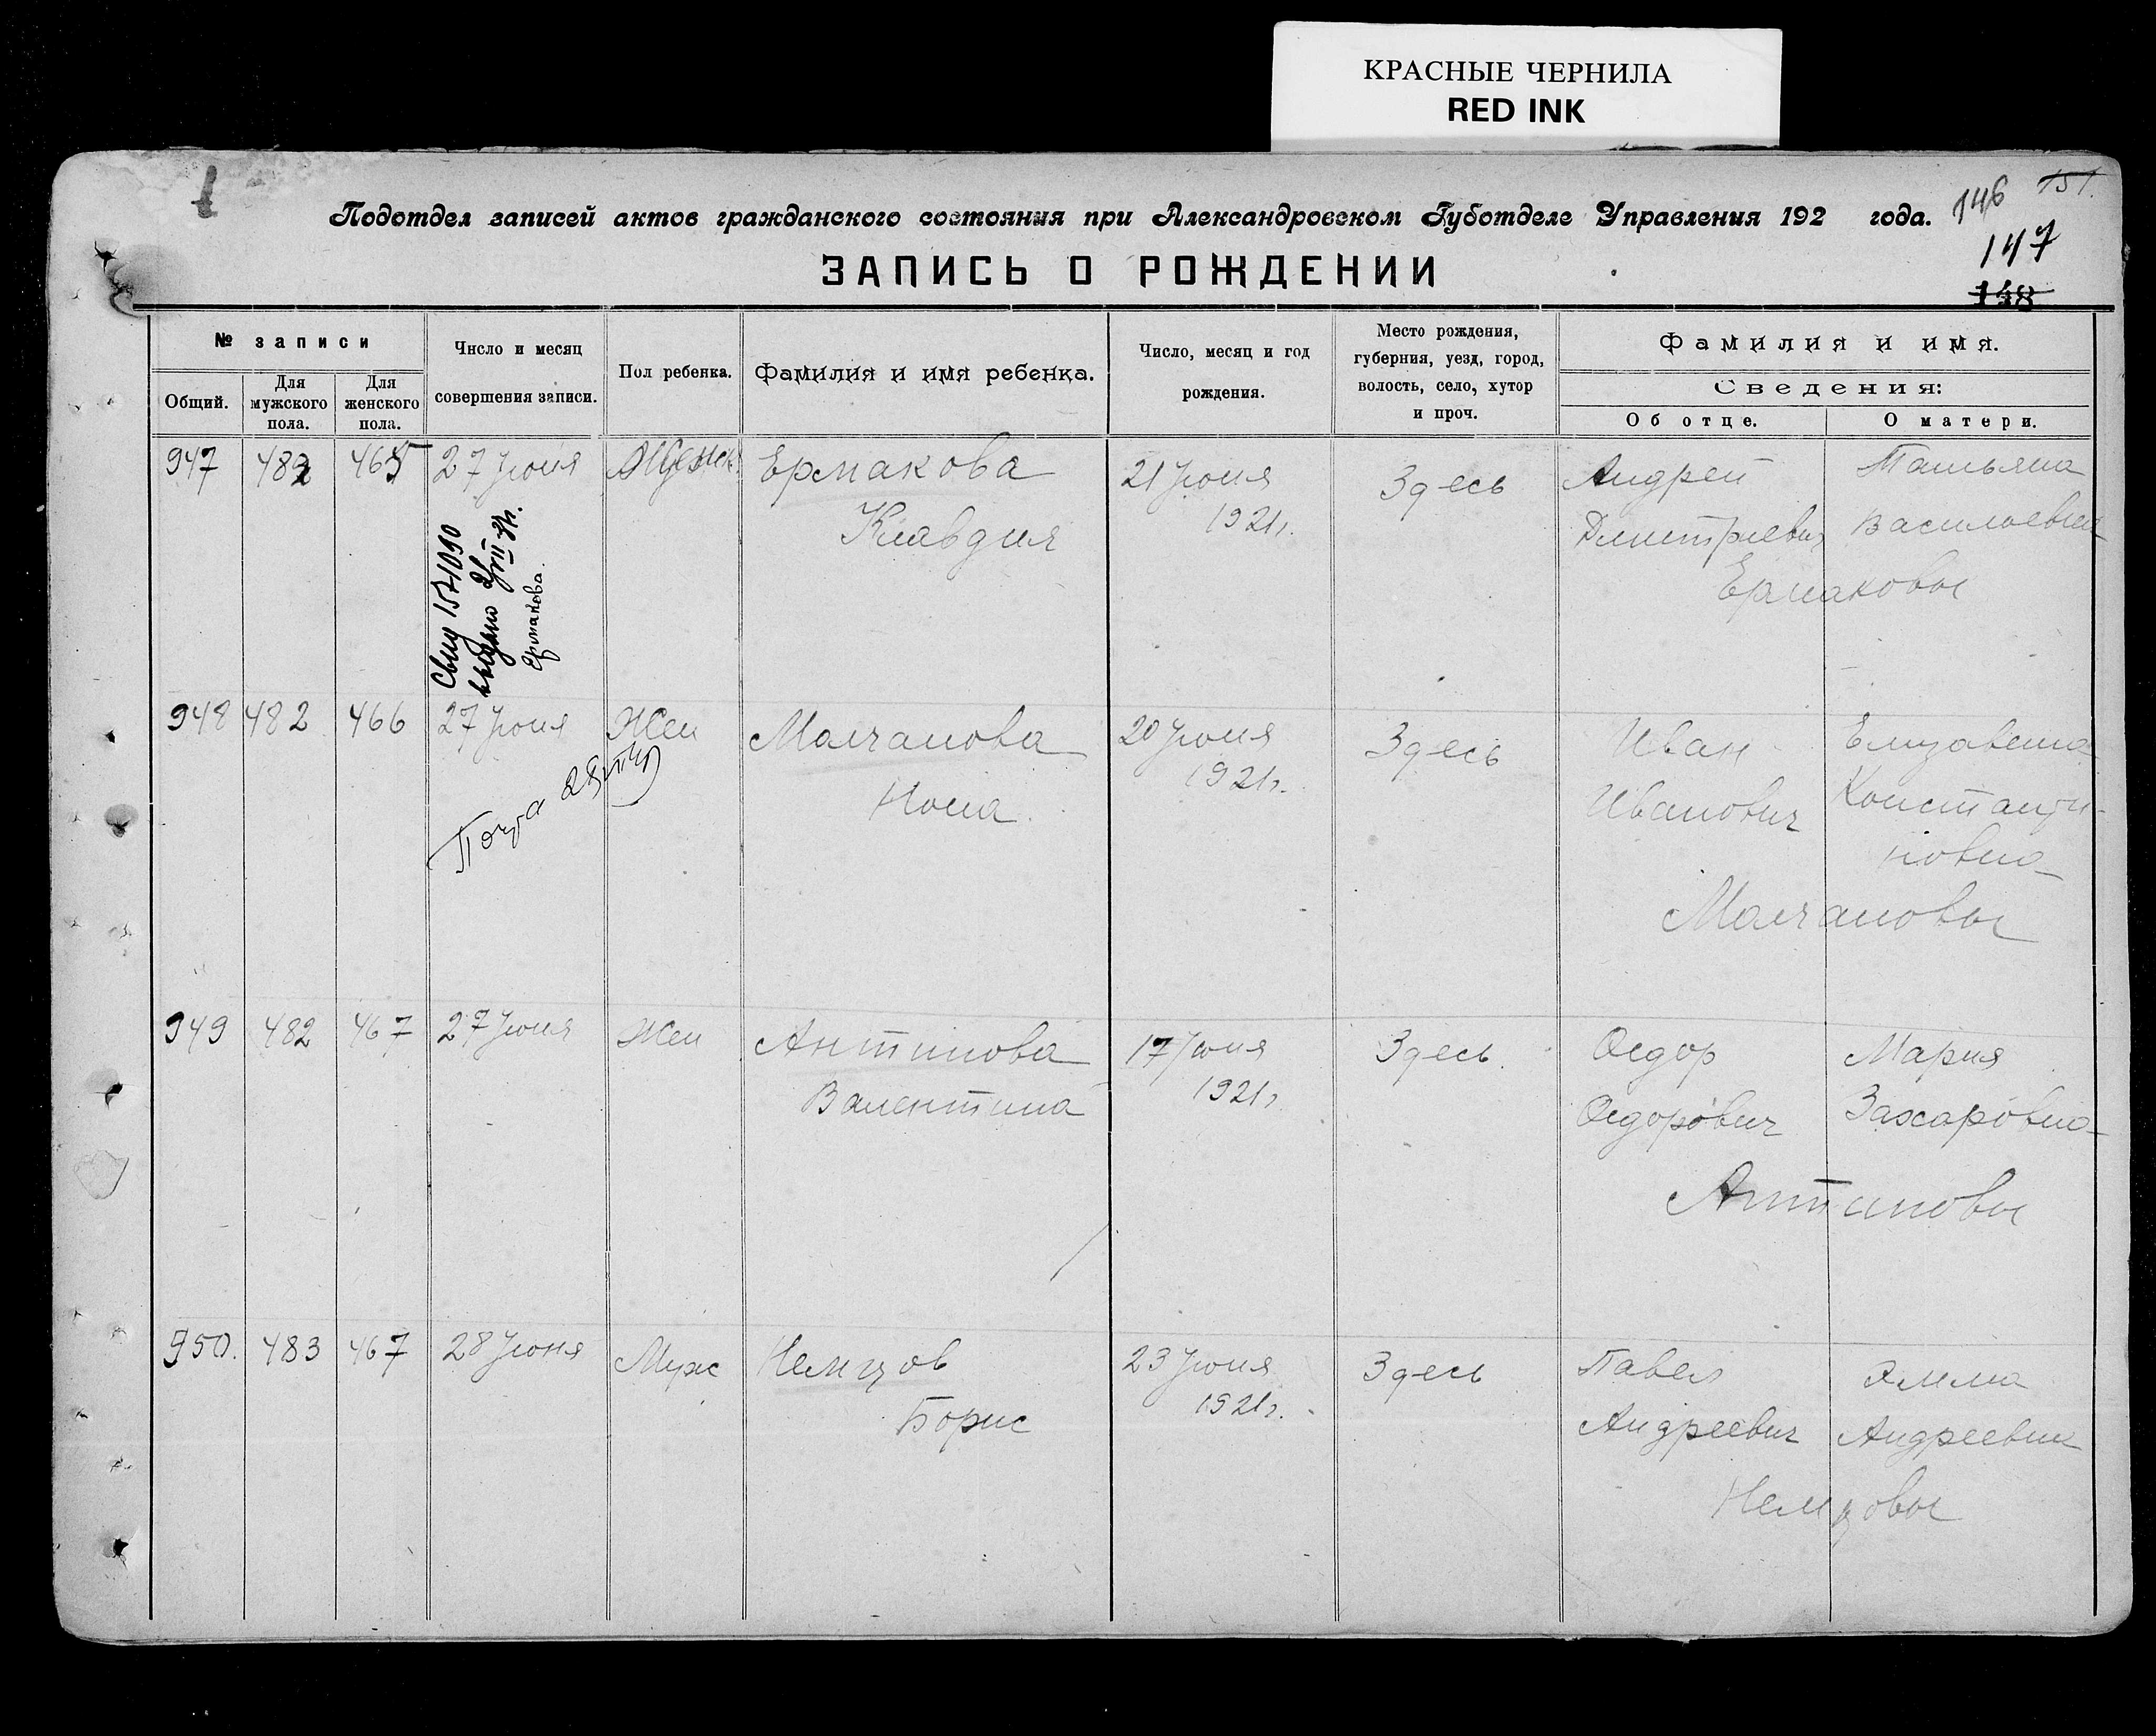 КРАСНЫЕ ЧЕРНИЛА
RED INK
146 151.
Подотдел записей актов гражданского состояния при Александровском Губотделе Управления 192 года.
147
ЗАПИСЬ О РОЖДЕНИИ
148
№ записи
Общий.
Для мужского пола.
Для женского пола.
Число и месяц совершения записи.
Пол ребенка.
Фамилия и имя ребенка.
Число, месяц и год рождения.
Место рождения, губерния, уезд, город, волость, село, хутор и проч.
Фамилия и имя.
Сведения:
Об отце.
О матери.
947 482 465 27 Июня Женск Ермакова 21 Июня Здесь Андрей Татьяна
Клавдия 1921г. Дмитриевич Васильевна
Ермаковы
Свид 1571090
выдано
Ермакова.
948 482 466 27 Июня Жен Молчанова 20 Июня Здесь Иван Елизавета
Нона 1921г. Иванович Константи-
новна
Молчановы
949 482 467 27 Июня Жен Антипова 17 Июня Здесь. Федор Мария
Валентина 1921г Федорович Захаровна
Антиповы
950. 483 467 28 Июня Муж Немцов 23 Июня Здесь Павел Эмма
Борис 1921г. Андреевич Андреевна
Немцовы